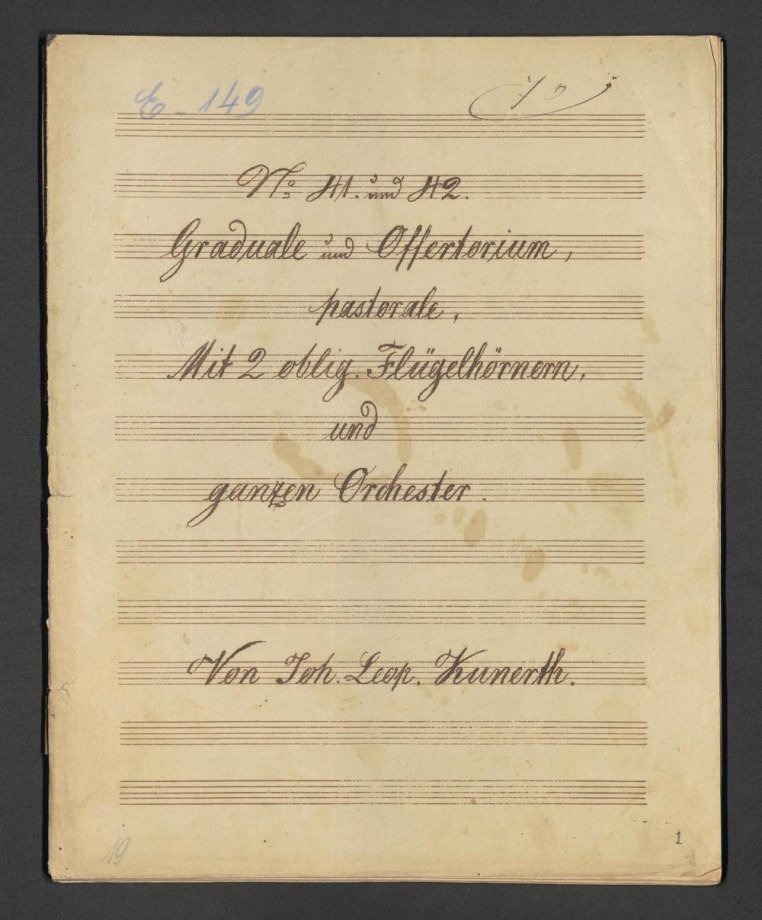 E-149
No. 41. und 42.
Graduale und Offertorium,
pastorale,
Mit 2 oblig. Flügelhörnern,
und
ganzen Orchester.
Von Joh. Leop. Kunerth.
19
1